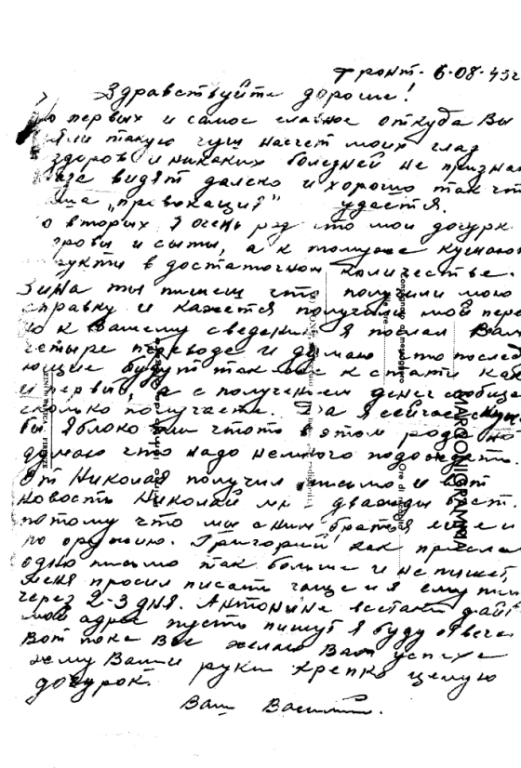 фронт. 6.08.43г
Здравствуйте дорогие!
о первых и самое главное откуда Вы
яли такую чушь насчет моих глаз
здоров и никаких болезней не признаю
видят далеко и хорошо так что
аша „провокация" удастся.
о вторых я очень рад что мои дочурк
оровы и сыты, а к тому же кушают
рукты в достаточном количестве.
Зина ты пишеш что получили мою
справку и кажется получили мой пере
но к Вашему сведению я послал Вам
четыре перевода и думаю что послед
ющие будут так же кстати как
и первый, а с получением денег сообща
сколько получаете. Да я сейчас
бы яблоко или чтото в этом роде но
думаю что надо немного подождать.
От Николая получил письмо и вот
новость Николай мн дважды брат.
потому что мы с ним братья еще и
по оружию. Григорий как прислал
одно письмо так больше и не пишет,
меня просил писать чаще и я ему пиш
через 2-3 дня. Антонине кстати дайте
мой адрес пусть пишут я буду отвеча
Вот пока все желаю Вам успеха
жму Ваши руки крепко целую
дочурок.
Ваш Василий.
MARCONIGRAMMA